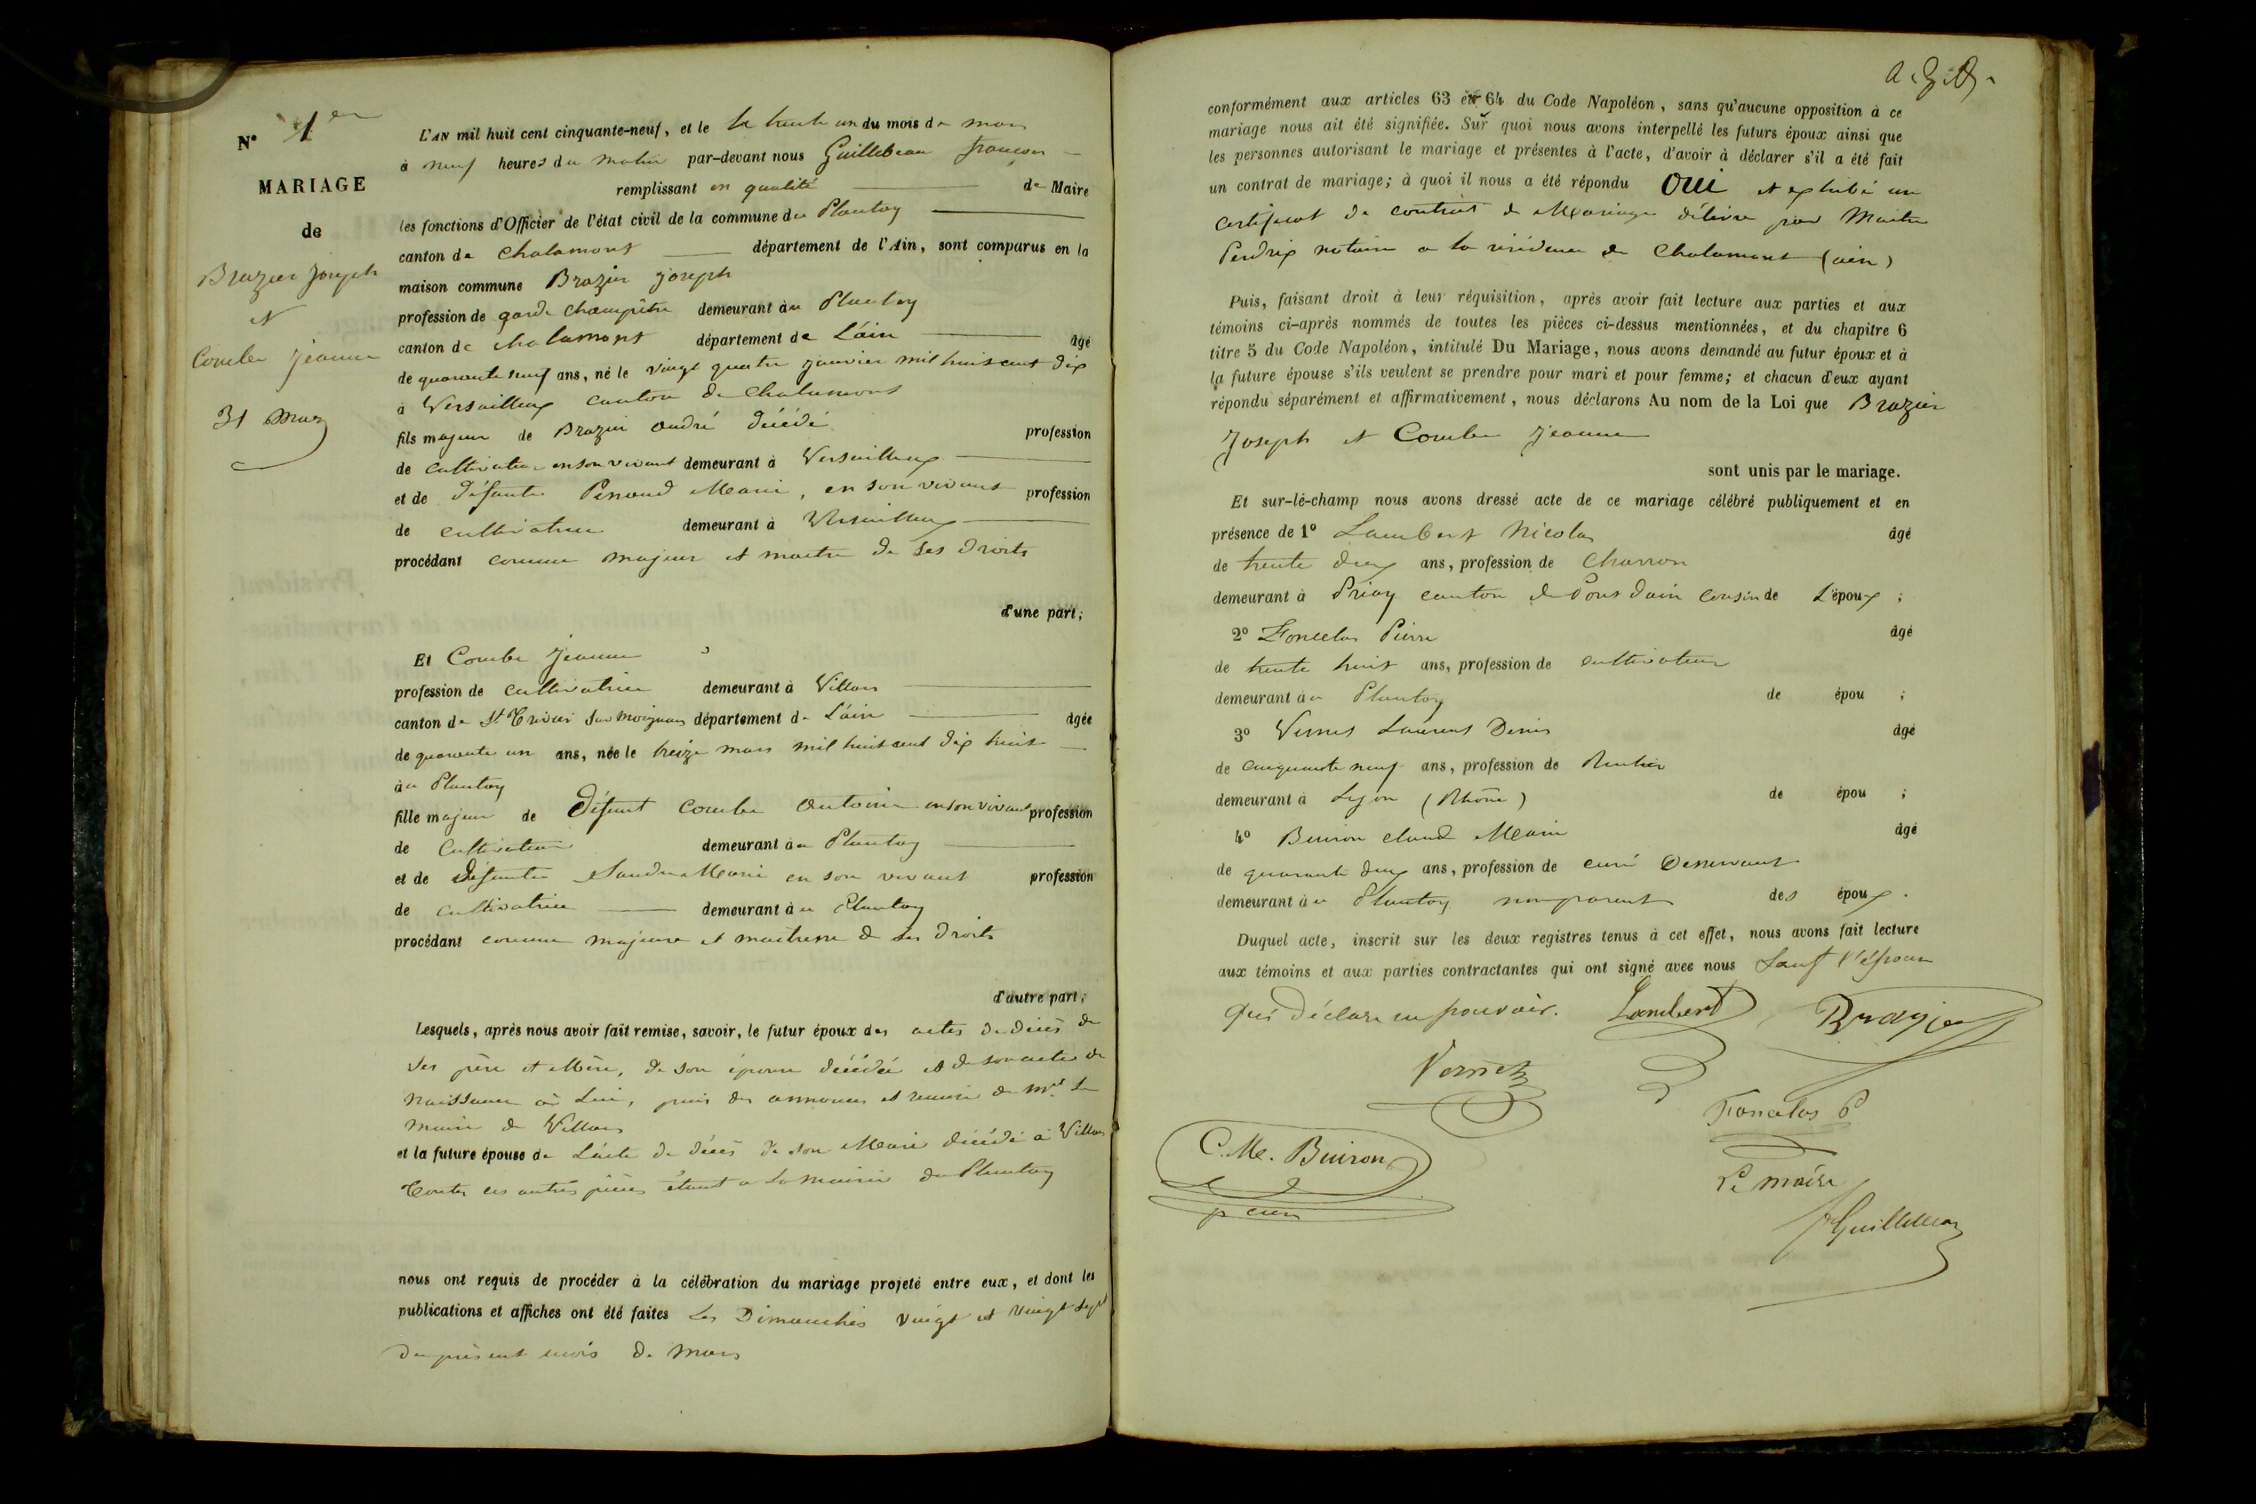 N° 1er
MARIAGE
de
Brazier Joseph
et
Combe Jeanne
31 Mars
L'AN mil huit cent cinquante-neuf, et le le trente un du mois de mars
à neuf heures du matin par-devant nous Guillebeau françois
remplissant en qualité de Maire
les fonctions d'Officier de l'état civil de la commune du Plantay
canton de Chalamont département de l'Ain, sont comparus en la
maison commune Brazier Joseph
profession de garde champêtre demeurant au Plantay
canton de chalamont département de L'áin âgé
de quarante neuf ans, né le vingt quatre janvier mil huit cent dix
à Versailleux canton de Chalamont
fils majeur de Brazier André décédé profession
de cultivateur en son vivant demeurant à Versailleux
et de défunte Penoud Marie, en son vivant profession
de cultivatrice demeurant à Versailleux
procédant comme majeur et maitre de ses droits
d'une part;
Et Combe Jeanne
profession de cultivatrice demeurant à Villars
canton de St Trivier sur moignans département de L'áin âgée
de quarante un ans, née le treize mars mil huit cent dix huit
au Plantay
fille majeur de Défunt Combe Antoine en son vivant profession
de Cultivateur demeurant au Plantay
et de Défunte Marie en son vivant profession
de cultivatrice demeurant au Plantay
procédant comme majeure et maitresse de ses droits
d'autre part;
Lesquels, après nous avoir fait remise, savoir, le futur époux des actes de décès de
ses père et Mère, de son épouse décédée et de son acte de
naissance à lui, puis des annonces et remise de Mr le
maire de Villars
et la future épouse de L'acte de décès de son Marie décédé à Villars
Toutes les autres pièces étant a la mairie du Plantay
nous ont requis de procéder à la célébration du mariage projeté entre eux, et dont les
publications et affiches ont été faites Les Dimanches vingt et vingt sept
du présent mois de mars
conformément aux articles 63 et 64 du Code Napoléon, sans qu'aucune opposition à ce
mariage nous ait été signifiée. Sur quoi nous avons interpellé les futurs époux ainsi que
les personnes autorisant le mariage et présentes à l'acte, d'avoir à déclarer s'il a été fait
un contrat de mariage; à quoi il nous a été répondu Oui et exhibé un
certificat de contrat de Mariage délivré par Maitre
Perdrix notaire a la résidence de Chalamont (ain)
Puis, faisant droit à leur réquisition, après avoir fait lecture aux parties et aux
témoins ci-après nommés de toutes les pièces ci-dessus mentionnées, et du chapitre 6
titre 5 du Code Napoléon, intitulé Du Mariage, nous avons demandé au futur époux et à
la future épouse s'ils veulent se prendre pour mari et pour femme; et chacun d'eux ayant
répondu séparément et affirmativement, nous déclarons Au nom de la Loi que Brazier
Joseph et Combe Jeanne
sont unis par le mariage.
Et sur-lé-champ nous avons dressé acte de ce mariage célébré publiquement et en
présence de 1° Lambert Nicolas âgé
de trente deux ans, profession de Charron
demeurant à Priay canton de Pont dain cousin de L'époux;
2° Foncelas Pierre âgé
de trente huit ans, profession de cultivateur
demeurant au Plantay de épou ;
3° Vernet Laurent Denis âgé
de cinquante neuf ans, profession de Rentier
demeurant à Lyon (Rhône) de épou ;
4° Buiron Claude Marie âgé
de quarante deux ans, profession de curé Desservant
demeurant au Plantay non parent des époux.
Duquel acte, inscrit sur les deux registres tenus à cet effet, nous avons fait lecture
aux témoins et aux parties contractantes qui ont signé avec nous Sauf l'épouse
qui déclare ne pouvoir. Lambert Brazier
Vernet
Foncelas P
C. Me. Buiron
p curé
Le maire
Guillebeau